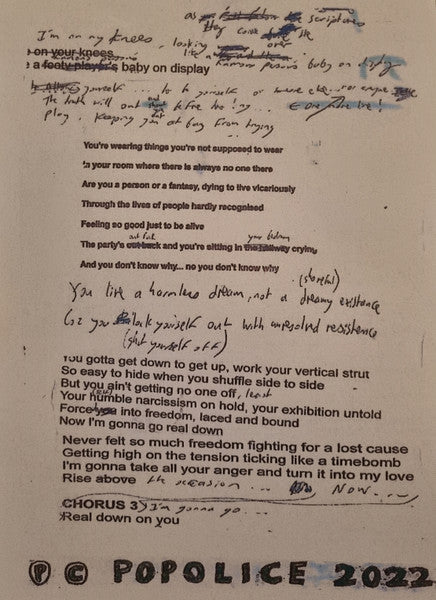 as the scriptures
they come
I'm on my knees, looking over
e on your knees
e a footy player's baby on display
famous persons baby on display
yourself... to be yourself or
The truth will out before
play. Keeping you at bay from trying
You're wearing things you're not supposed to wear
In your room where there is always no one there
Are you a person or a fantasy, dying to live vicariously
Through the lives of people hardly recognised
Feeling so good just to be alive
out back your bedroom
The party's out back and you're sitting in the hallway crying
And you don't know why... no you don't know why
(shameful)
You live a harmless dream, not a dreamy existence
Coz you lock yourself out with unresolved resistence
(shut yourself off)
You gotta get down to get up, work your vertical strut
So easy to hide when you shuffle side to side
But you ain't getting no one off, least
Your humble narcissism on hold, your exhibition untold
Force you into freedom, laced and bound
Now I'm gonna go real down
Never felt so much freedom fighting for a lost cause
Getting high on the tension ticking like a timebomb
I'm gonna take all your anger and turn it into my love
Rise above the occasion... Now...
CHORUS 3) I'm gonna go...
Real down on you
℗ © POPOLICE 2022